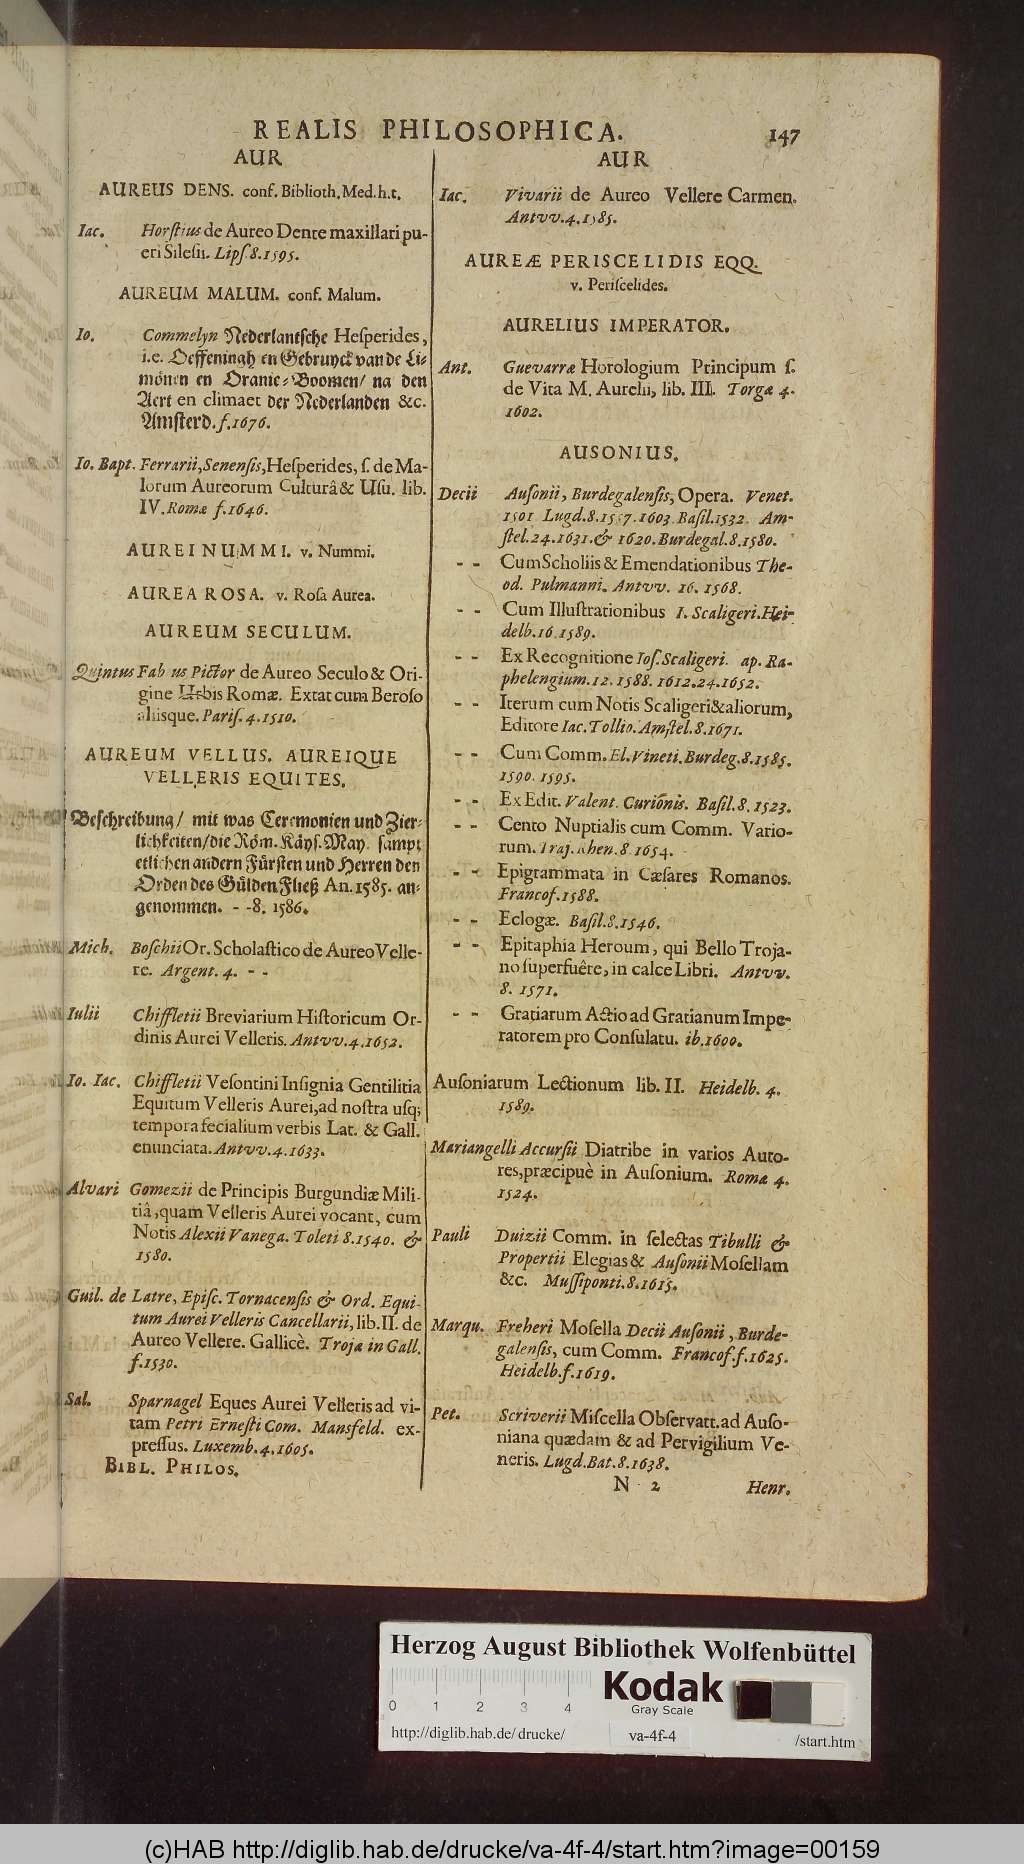 REALIS PHILOSOPHICA. 147
AUR
AUREUS DENS. conf. Biblioth. Med. h. t.
Iac. Horſtius de Aureo Dente maxillari pu-
eri Sileſii. Lipſ. 8. 1595.
AUREUM MALUM. conf. Malum.
Io. Commelyn Nederlantſche Heſperides,
i.e. Oeffeningh en Gebruyck van de Li-
mónen en Oranie-Boomen/ na den
Aert en climaet der Nederlanden &c.
Amſterd. f. 1676.
Io. Bapt. Ferrarii, Senenſis, Heſperides, ſ. de Ma-
lorum Aureorum Culturâ & Uſu. lib.
IV. Romæ f. 1646.
AUREI NUMMI. v. Nummi.
AUREA ROSA. v. Roſa Aurea.
AUREUM SECULUM.
Quintus Fab us Pictor de Aureo Seculo & Ori-
gine Urbis Romæ. Extat cum Beroſo
aliisque. Pariſ. 4. 1510.
AUREUM VELLUS. AUREIQUE
VELLERIS EQUITES.
Beſchreibung/ mit was Ceremonien und Zier-
lichkeiten/die Röm. Käyſ. May. ſampt
etlichen andern Fürſten und Herren den
Orden des Gülden Fließ An. 1585. an-
genommen. - - 8. 1586.
Mich. Boſchii Or. Scholaſtico de Aureo Velle-
re. Argent. 4. - -
Iulii Chiffletii Breviarium Hiſtoricum Or-
dinis Aurei Velleris. Antvv. 4. 1652.
Io. Iac. Chiffletii Veſontini Inſignia Gentilitia
Equitum Velleris Aurei, ad noſtra uſq;
tempora fecialium verbis Lat. & Gall.
enunciata. Antvv. 4. 1633.
Alvari Gomezii de Principis Burgundiæ Mili-
tiâ, quam Velleris Aurei vocant, cum
Notis Alexii Vanega. Toleti 8. 1540. &
1580.
Guil. de Latre, Epiſc. Tornacenſis & Ord. Equi-
tum Aurei Velleris Cancellarii, lib. II. de
Aureo Vellere. Gallicè. Trojæ in Gall.
f. 1530.
Sal. Sparnagel Eques Aurei Velleris ad vi-
tam Petri Erneſti Com. Mansfeld. ex-
preſſus. Luxemb. 4. 1605.
BIBL. PHILOS.
AUR
Iac. Vivarii de Aureo Vellere Carmen.
Antvv. 4. 1585.
AUREÆ PERISCELIDIS EQQ.
v. Periſcelides.
AURELIUS IMPERATOR.
Ant. Guevarræ Horologium Principum ſ.
de Vita M. Aurelii, lib. III. Torgæ 4.
1602.
AUSONIUS.
Decii Auſonii, Burdegalenſis, Opera. Venet.
1501 Lugd. 8. 1557. 1603. Baſil. 1532. Am-
ſtel. 24. 1631. & 1620. Burdegal. 8. 1580.
- - Cum Scholiis & Emendationibus The-
od. Pulmanni. Antvv. 16. 1568.
- - Cum Illuſtrationibus I. Scaligeri. Hei-
delb. 16. 1589.
- - Ex Recognitione Ioſ. Scaligeri. ap. Ra-
phelengium. 12. 1588. 1612. 24. 1652.
- - Iterum cum Notis Scaligeri & aliorum,
Editore Iac. Tollio. Amſtel. 8. 1671.
- - Cum Comm. El. Vineti. Burdeg. 8. 1585.
1590. 1595.
- - Ex Edit. Valent. Curionis. Baſil. 8. 1523.
- - Cento Nuptialis cum Comm. Vario-
rum. Traj. Rhen. 8. 1654.
- - Epigrammata in Cæſares Romanos.
Francof. 1588.
- - Eclogæ. Baſil. 8. 1546.
- - Epitaphia Heroum, qui Bello Troja-
no ſuperfuêre, in calce Libri. Antvv.
8. 1571.
- - Gratiarum Actio ad Gratianum Impe-
ratorem pro Conſulatu. ib. 1600.
Auſoniarum Lectionum lib. II. Heidelb. 4.
1589.
Mariangelli Accurſii Diatribe in varios Auto-
res, præcipuè in Auſonium. Romæ 4.
1524.
Pauli Duizii Comm. in ſelectas Tibulli &
Propertii Elegias & Auſonii Moſellam
&c. Muſſiponti. 8. 1615.
Marqu. Freheri Moſella Decii Auſonii, Burde-
galenſis, cum Comm. Francof. f. 1625.
Heidelb. f. 1619.
Pet. Scriverii Miſcella Obſervatt. ad Auſo-
niana quædam & ad Pervigilium Ve-
neris. Lugd. Bat. 8. 1638.
N 2 Henr.
Herzog August Bibliothek Wolfenbüttel
0 1 2 3 4
Kodak
Gray Scale
http://diglib.hab.de/drucke/ va-4f-4 /start.htm
(c)HAB http://diglib.hab.de/drucke/va-4f-4/start.htm?image=00159